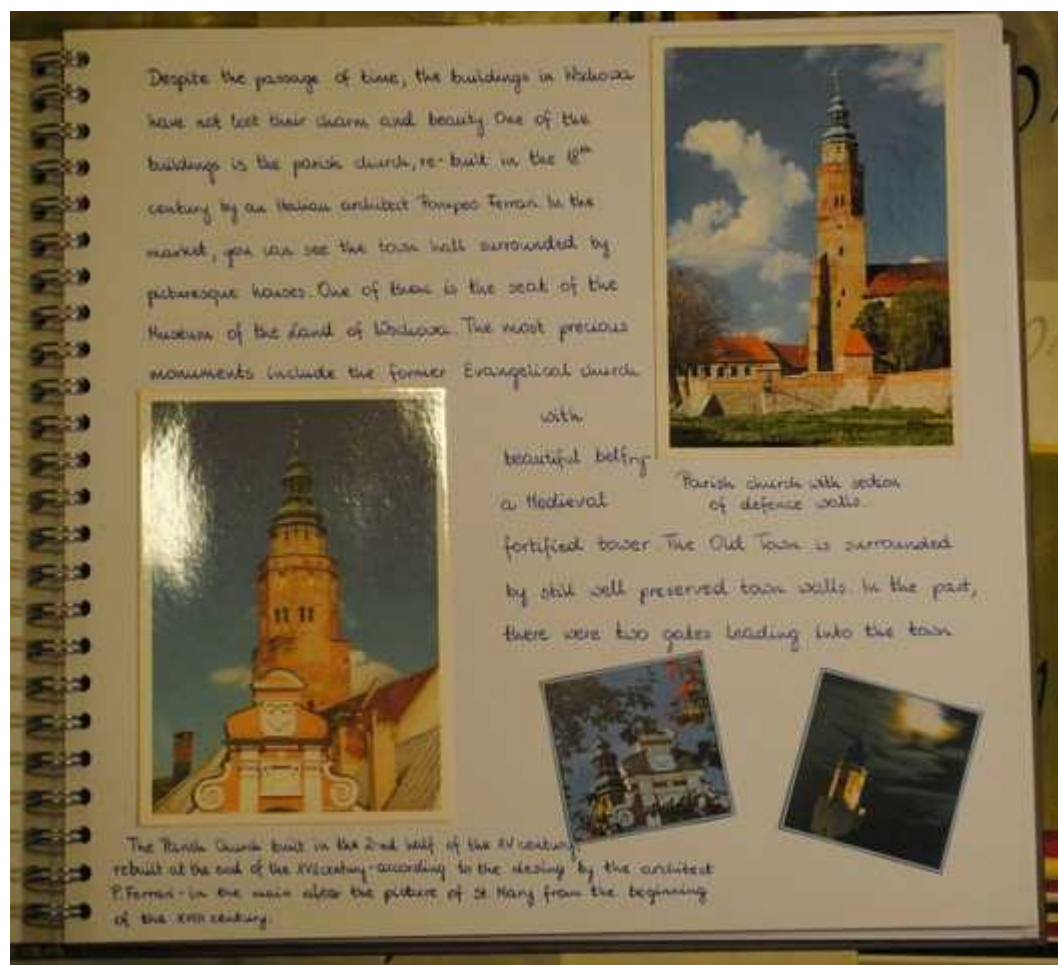 Despite the passage of time, the buildings in Wschowa
have not lost their charm and beauty. One of the
buildings is the parish church, re-built in the 18th
century by an Italian architect Pompeo Ferrari. In the
market, you can see the town hall surrounded by
picturesque houses. One of them is the seat of the
Museum of the Land of Wschowa. The most precious
monuments include the former Evangelical church
with
beautiful belfry
a Medieval
fortified tower. The Old Town is surrounded
by still well preserved town walls. In the past,
there were two gates leading into the town
Parish church with section
of defence walls.
The Parish Church built in the 2-nd half of the XV century,
rebuilt at the end of the XVI century - according to the desing by the architect
P. Ferrari - in the main altar the picture of St. Mary from the beginning
of the XVIII century.